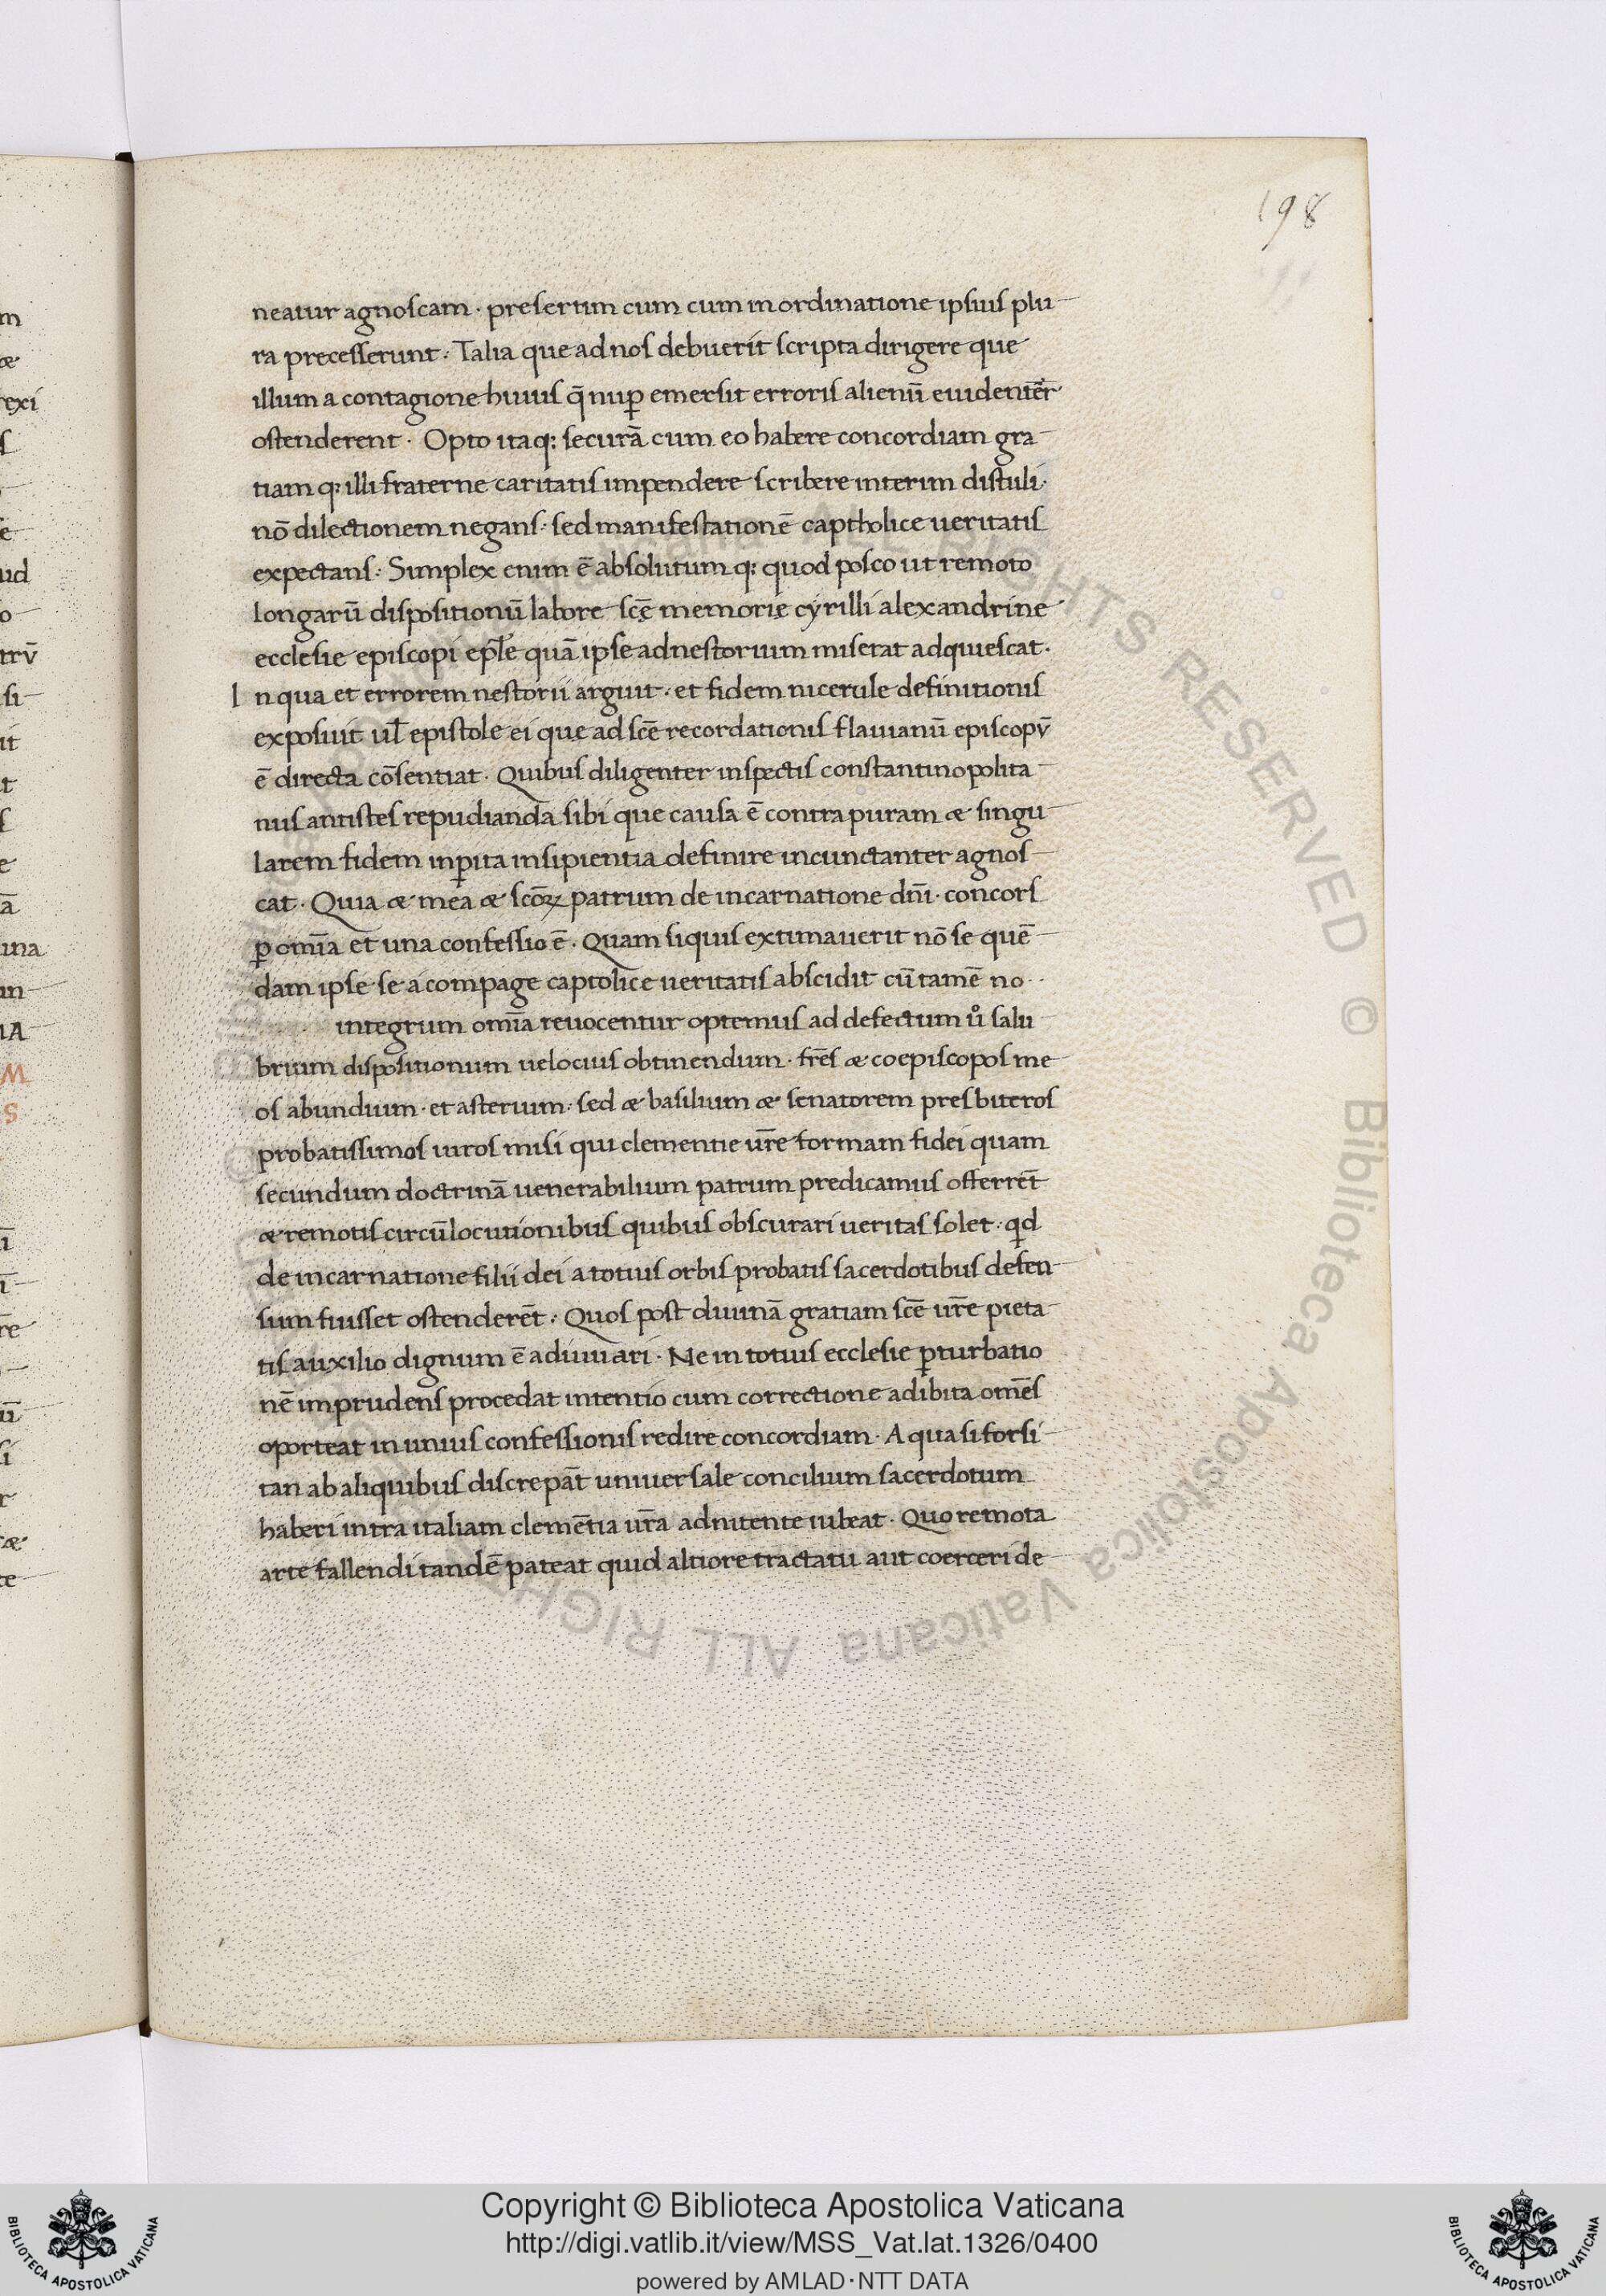 198
neatur agnoscam · presertim cum cum in ordinatione ipsius plu
ra precesserunt · Talia que ad nos debuerit scripta dirigere que
illum a contagione huius q̄ nuꝑ emersit erroris alienū euidenter
ostenderent · Opto itaq; securā cum eo habere concordiam gra
tiam q; illi fraterne caritatis impendere scribere interim distuli ·
nō dilectionem negans · sed manifestationē captholice ueritatis
expectans · Simplex enim ē absolutum q; quod posco ut remoto
longarū dispositionū labore scē memorię cyrilli alexandrine
ecclesie episcopi epłe quā ipse ad nestorium miserat adquiescat ·
In qua et errorem nestorii arguit · et fidem nicerule definitionis
exposuit uł epistole ei quę ad scē recordationis flauianū episcopū
ē directa cōsentiat · Quibus diligenter inspectis constantinopolita
nus antistes repudianda sibi que causa ē contra puram æ singu
larem fidem inꝑita insipientia definire incunctanter agnos
cat · Quia æ mea æ scōꝝ patrum de incarnatione dn̄i · concors
ꝑ omīa et una confessio ē · Quam siquis extimauerit nō se quē
dam ipse se a compage captolice ueritatis abscidit cū tamē no
integrum omīa reuocentur optemus ad defectum uͦ salu
brium dispositionum uelocius obtinendum · fr̄es æ coepiscopos me
os abundium · et asterium · sed æ basilium æ senatorem presbiteros
probatissimos uiros misi qui clementie ur̄e formam fidei quam
secundum doctrinā uenerabilium patrum predicamus offerrēt
æ remotis circūlocutionibus quibus obscurari ueritas solet · qd
de incarnatione filii dei a totius orbis probatis sacerdotibus defen
sum fuisset ostenderēt · Quos post diuinā gratiam scē ur̄e pieta
tis auxilio dignum ē adiuuari · Ne in totius ecclesie ꝑturbatio
nē imprudens procedat intentio cum correctione adibita omēs
oporteat in unius confessionis redire concordiam · A qua si forsi
tan ab aliquibus discrepāt uniuersale concilium sacerdotum
haberi intra italiam clemētia ur̄a adnitente iubeat · Quo remota
arte fallendi tandē pateat quid altiore tractatu aut coerceri de
© Biblioteca Apostolica Vaticana ALL RIGHTS RESERVED
Copyright © Biblioteca Apostolica Vaticana
http://digi.vatlib.it/view/MSS_Vat.lat.1326/0400
powered by AMLAD·NTT DATA
BIBLIOTECA APOSTOLICA VATICANA
BIBLIOTECA APOSTOLICA VATICANA